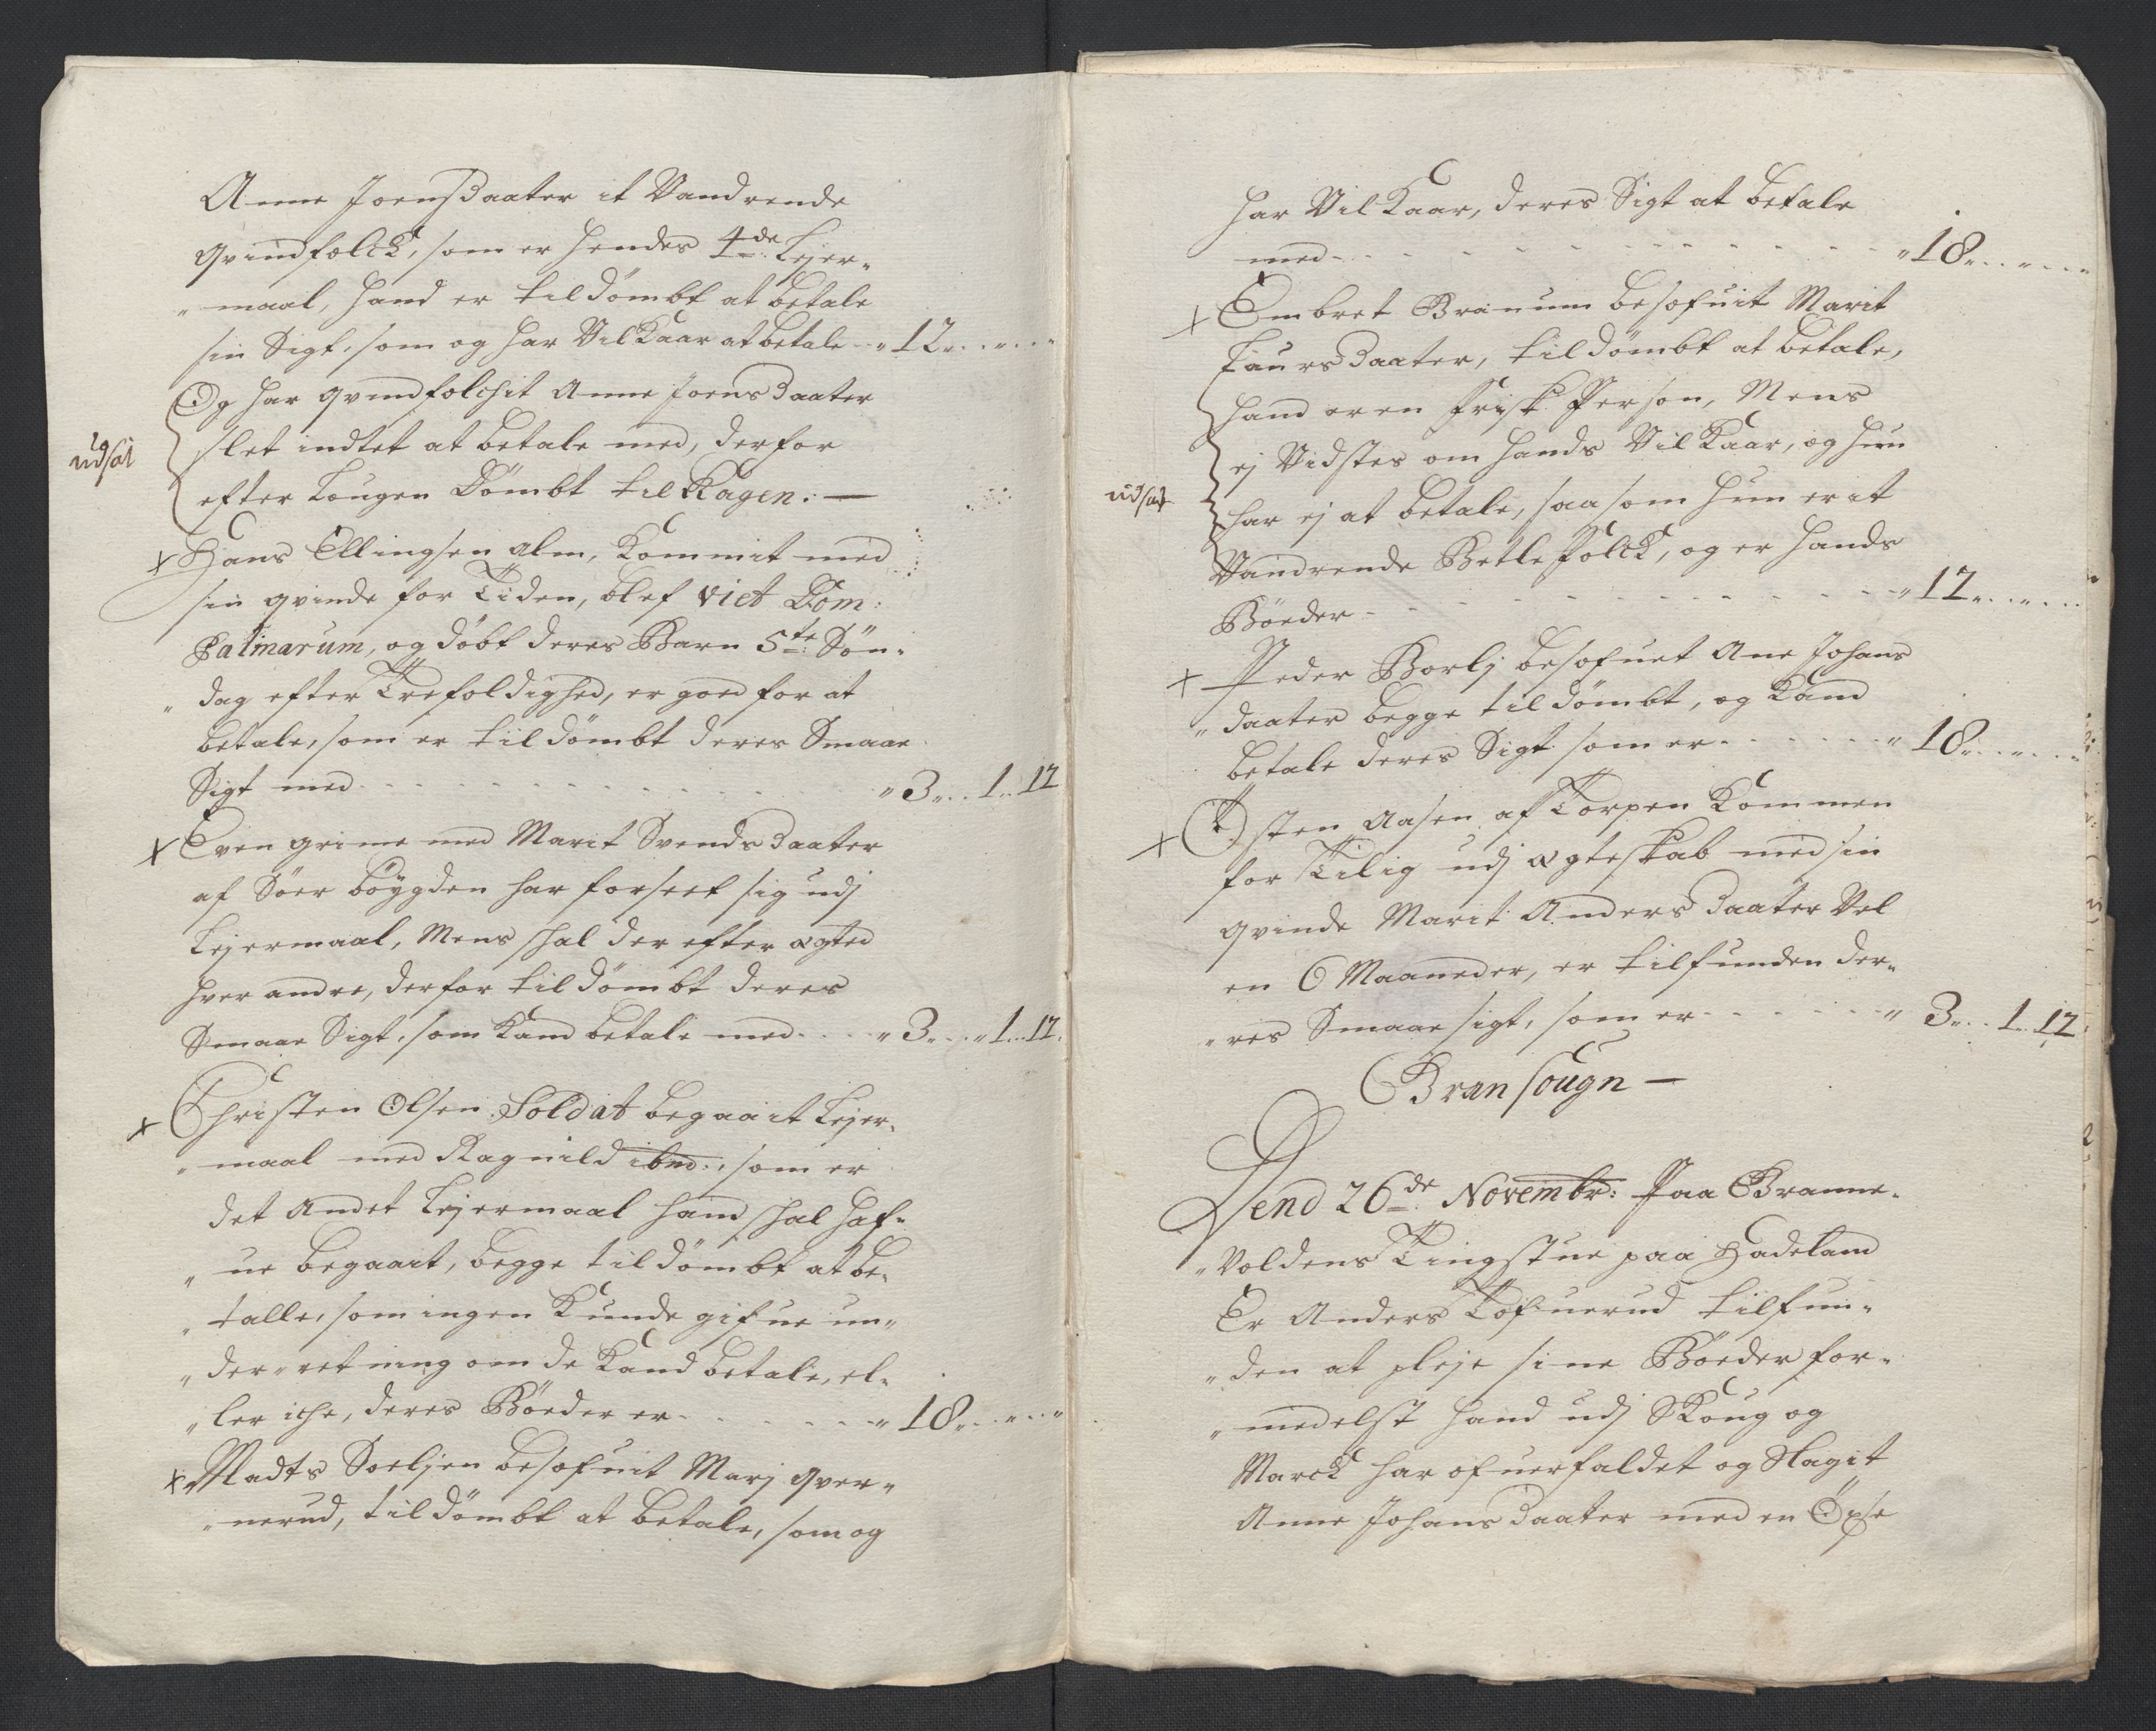 Anne JoensDaater it Vandrende
qvindfolck, som er hendes 4de Lejer„
„maal, hand er tildömbt at betale
sin Sigt, som og har VilKaar at betale - „ 12„..„..„
Og har qvindfolchit Anne Joens Daater
slet indtet at betale med, derfor
udsat
efter Lougen Dömbt til Kagen. —
+ Hans Ellingsen Alm, Kommit med
sin qvinde for Tiden, blef Viet Dom:
Palmarum, og döbt deres Barn 5te Sön„
„dag efter Trefoldighed, er goed for at
betale, som er tildömbt deres Smaae
Sigt med - - - - - „ 3„.. 1.. 12
+ Even grime med Marit Svends Daater
af Söer böygden har forseet sig udj
Lejermaal, Mens schal der efter ægted
hver andre, derfor tildömbt deres
Smaae Sigt, som Kand betale med - - „ 3„..„1..12.
+ Christen Olsen Soldat begaait Lejer„
„maal med Ragnild ibm:, som er
det andet Lejermaal hand schal haf„
„ue begaait, begge tildömbt at be„
„talle, som ingen Kunde gifue un„
„der„retning om de Kand betale, el„
„ler iche, deres Böeder er - - - „ 18„..„..„
+ Madts Soeljen besofuit Marj qver„
„nerud, tildömbt at betale, som og
har VilKaar, deres Sigt at betale
med - - - - - „ 18„..„..„
+ Embret Branum besofuit Marit
LaursDaater, tildömbt at betale,
hand er en frisk Person, Mens
ej Vidstes om hands VilKaar, og hun
udsat
har ej at betale, saasom hun er it
Vandrende Betlefolck, og er hands
Böeder - - - - - „ 12„..„..
+ Peder Borlj besofuet Ane Johans
„daater begge tildömbt, og Kand
betale deres Sigt som er - - - „ 18„..„..
+ Östen Aasen af Torpen Kommen
for Tilig udj ægteskab med sin
qvinde Marit Anders Daater Vel
en 6 Maaneder, er tilfunden der„
„res Smaae sigt, som er - - - „ 3„.. 1.. 12
Bran sougn —
Dend 26de Novembr: Paa Branne„
„Voldens Tingstue paa Hadeland
Er Anders Tofuerud tilfun„
„den at pleje sine Böeder for„
„medelst hand udj Skoug og
Marck har ofuerfaldet og Slagit
Anne Johans Daater med en Öxse